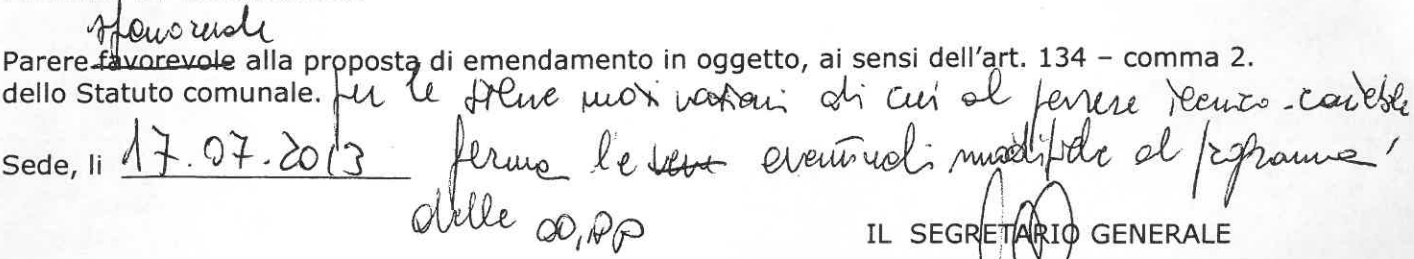 sfavorevole
Parere favorevole alla proposta di emendamento in oggetto, ai sensi dell'art. 134 – comma 2.
dello Statuto comunale. per le stesse motivazioni di cui al parere tecnico-contabile
Sede, li 17.07.2013 ferme le eventuali modifiche al programma
delle OO.PP
IL SEGRETARIO GENERALE